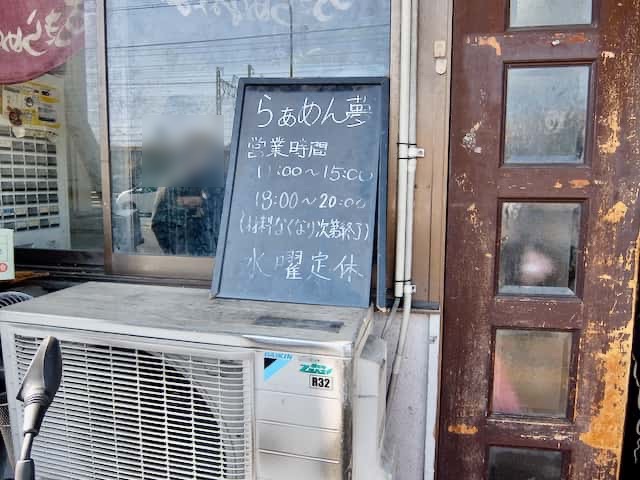 らぁめん夢
営業時間
11:00〜15:00
18:00〜20:00
(材料なくなり次第終了)
水曜定休
DAIKIN
R32